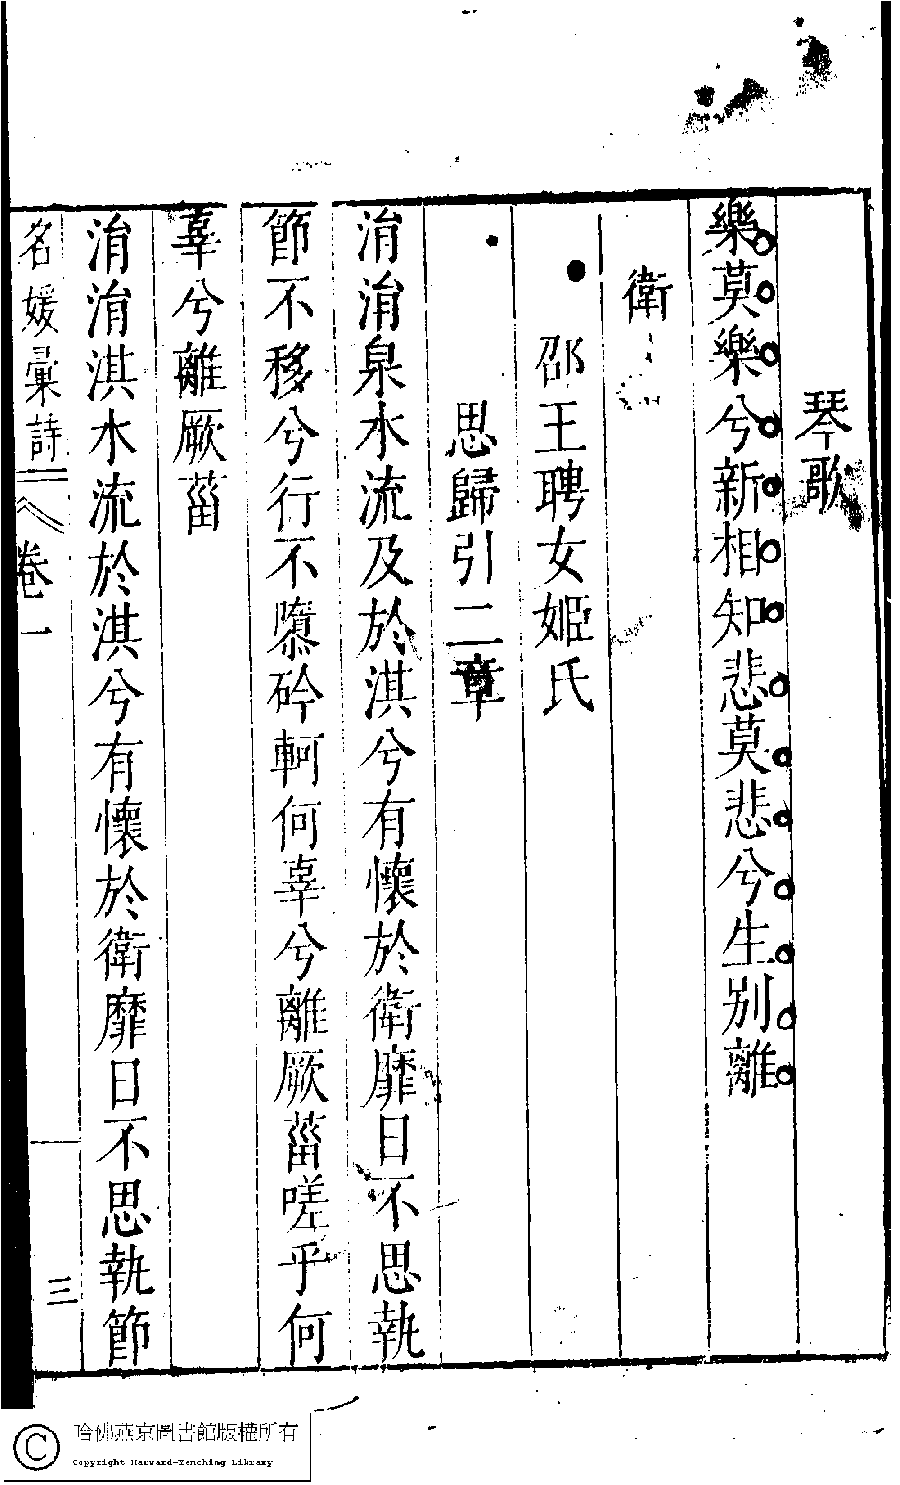 琴歌
樂莫樂兮新相知悲莫悲兮生別離
衛
邵王聘女姬氏
思歸引二章
涓涓泉水流及於淇兮有懷於衛靡日不思執
節不移兮行不隳砱軻何辜兮離厥菑嗟乎何
辜兮離厥菑
涓涓淇水流於淇兮有懷於衛靡日不思執節
名媛彙詩 卷一 三
哈佛燕京圖書館版權所有
Copyright Harvard-Yenching Library